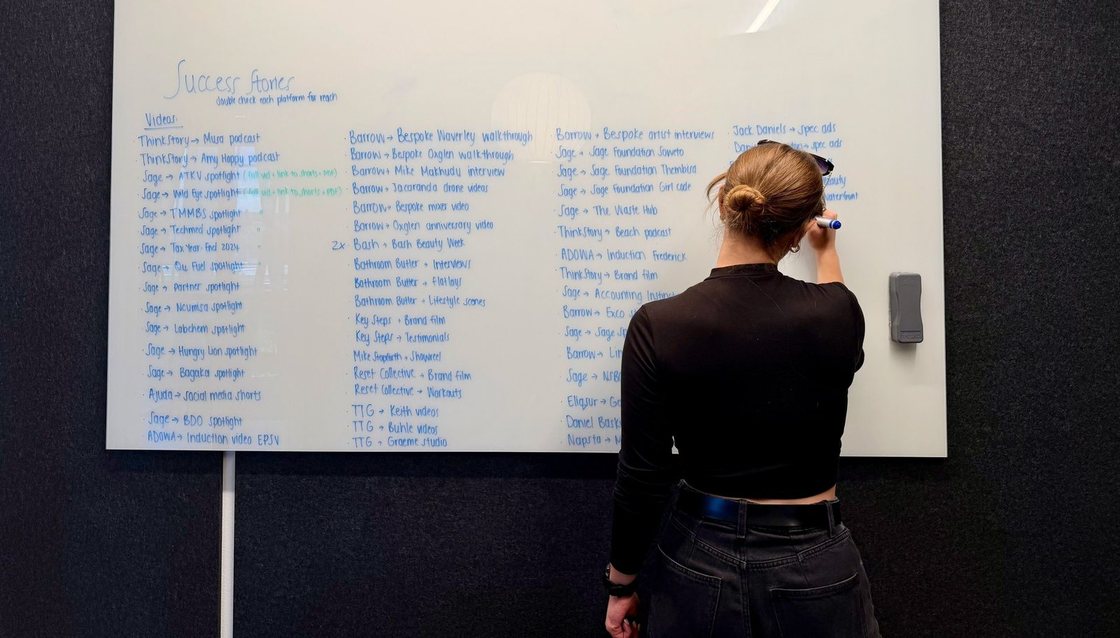 Success Stories
double check each platform for reach
Videos:
ThinkStory → Musa podcast
ThinkStory → Amy Hoppy podcast
Sage → ATKV spotlight (full vid + link to shorts + PDF)
Sage → Wild Eye spotlight (full vid + link to shorts + PDF)
Sage → TMMBS spotlight "
Sage → Techmed spotlight "
Sage → Tax Year End 2024 "
Sage → Qu Fuel spotlight "
Sage → Partner spotlight
Sage → Ncumisa spotlight
Sage → Labchem spotlight
Sage → Hungry Lion spotlight
Sage → Bagaka spotlight
· Ajuda → social media shorts
· Sage → BDO spotlight
· ADOWA → Induction video EPSV
· Barrow → Bespoke Waverley walkthrough
Barrow → Bespoke Oxglen walkthrough
Barrow → Mike Makhudu interview
· Barrow → Jacaranda drone videos
· Barrow → Bespoke mixer video
· Barrow → Oxglen anniversary video
2x · Bash → Bash Beauty Week
Bathroom Butler → Interviews
Bathroom Butler → Flatlays
· Bathroom Butler → Lifestyle scenes
· Key Steps → Brand film
Key Steps → Testimonials
Mike Stopforth → Showreel
· Reset Collective → Brand film
Reset Collective → Workouts
· TTG → Keith videos
· TTG → Buhle videos
· TTG → Graeme studio
· Barrow → Bespoke artist interviews
Sage → Sage Foundation Soweto
· Sage → Sage Foundation Thembira
· Sage → Sage Foundation Girl code
· Sage → The Waste Hub
ThinkStory → Beach podcast
· ADOWA → Induction Frederick
ThinkStory → Brand film
· Sage → Accounting
· Barrow → Exco
· Sage → Sage
· Barrow →
Sage →
· Eliqsur →
Daniel
· Napsta →
Jack Daniels → spec ads
spec ads
Beauty
Waterfront